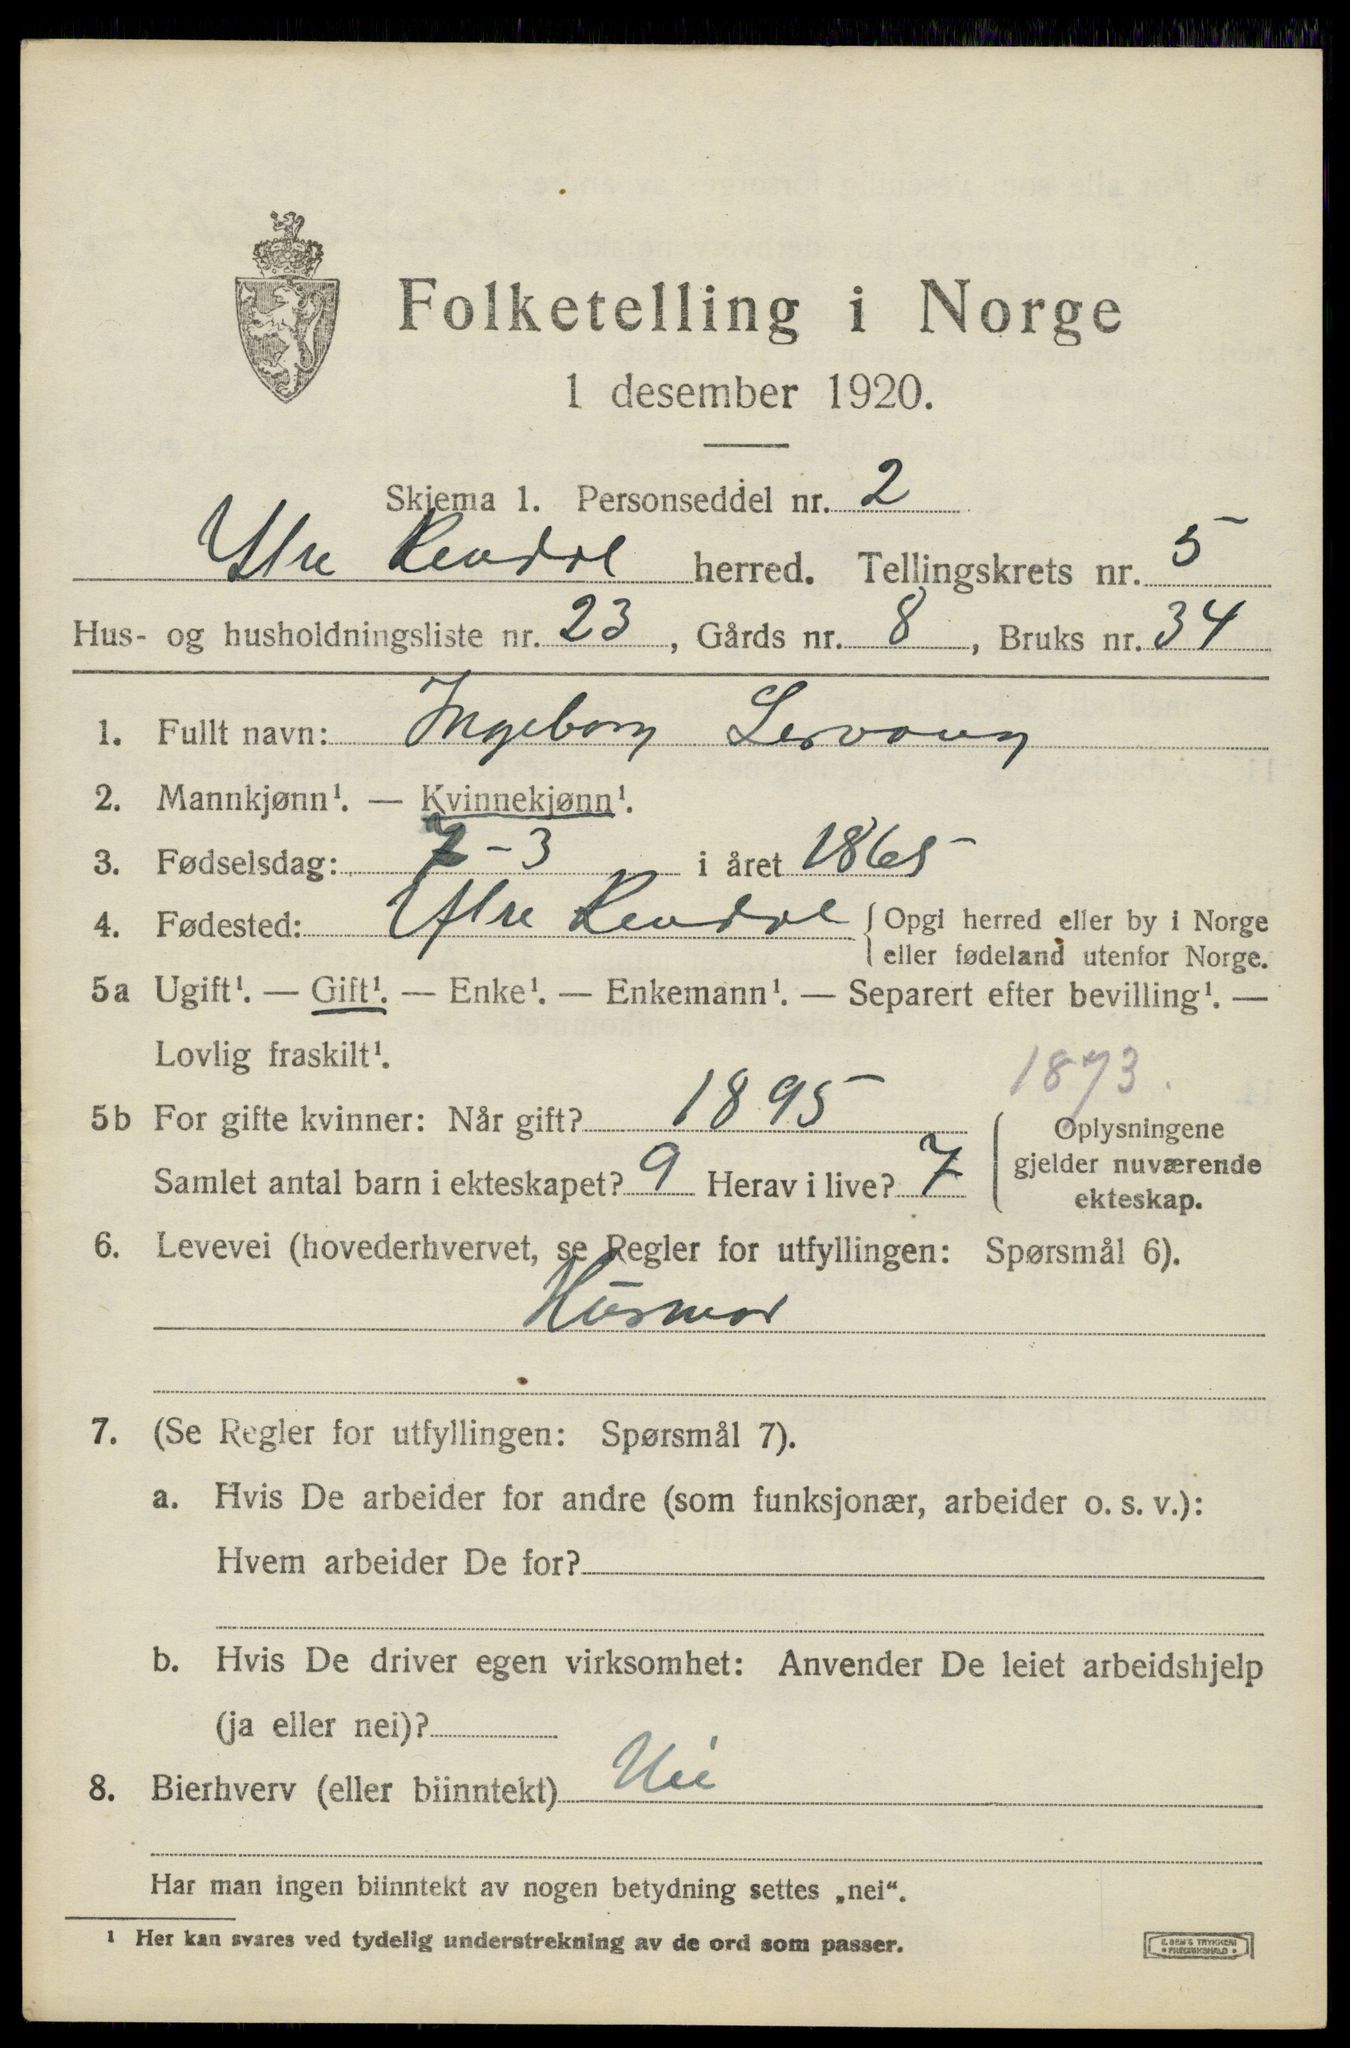 Folketelling i Norge
1 desember 1920.
Skjema 1. Personseddel nr. 2
Ytre Rendal herred. Tellingskrets nr. 5
Hus- og husholdningsliste nr. 23, Gårds nr. 8, Bruks nr. 34
1. Fullt navn: Ingeborg
2. Mannkjønn¹. — Kvinnekjønn¹.
3. Fødselsdag: 7-3 i året 1865
4. Fødested: Ytre Rendal { Opgi herred eller by i Norge
eller fødeland utenfor Norge.
5a Ugift¹. — Gift¹. — Enke¹. — Enkemann¹. — Separert efter bevilling¹. —
Lovlig fraskilt¹.
1873.
5b For gifte kvinner: Når gift? 1895 Oplysningene
gjelder nuværende
Samlet antal barn i ekteskapet? 9 Herav i live? 7
ekteskap.
6. Levevei (hovederhvervet, se Regler for utfyllingen: Spørsmål 6).
Husmor
7. (Se Regler for utfyllingen: Spørsmål 7).
a. Hvis De arbeider for andre (som funksjonær, arbeider o. s. v.):
Hvem arbeider De for?
b. Hvis De driver egen virksomhet: Anvender De leiet arbeidshjelp
(ja eller nei)?
8. Bierhverv (eller biinntekt) Nei
Har man ingen biinntekt av nogen betydning settes „nei“.
¹ Her kan svares ved tydelig understrekning av de ord som passer.
E. SEM'S TRYKKERI
• FREDRIKSHALD •